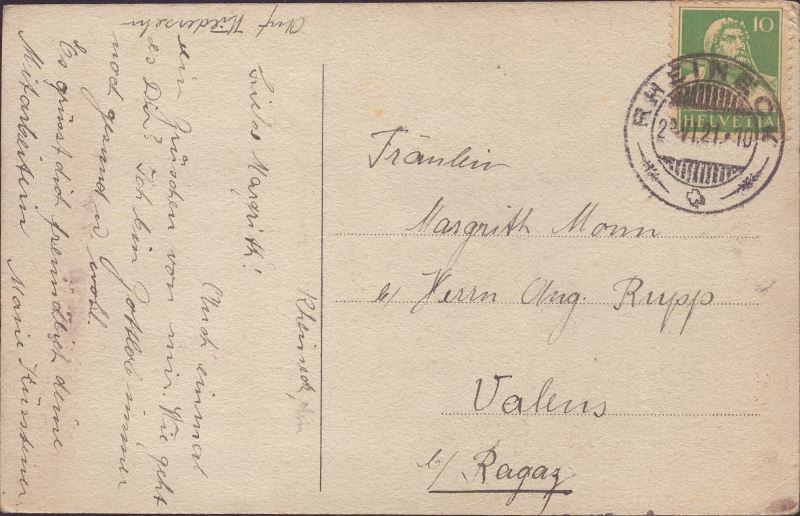 Rheineck, den
Liebes Margrith!
Auch einmal
ein Grüschen von mir. Wie geht
es Dir? Ich bin Gottlob immer
noch gesund u. wohl.
Es grüsst dich freundlich deine
Mitarbeiterin Marie Kürsteiner
Auf Wiedersehn
10
HELVETIA
RHEINECK
VI.21.-10
Fräulein
Margrith Monn
b/ Herrn Aug. Rupp
Valens
b/ Ragaz